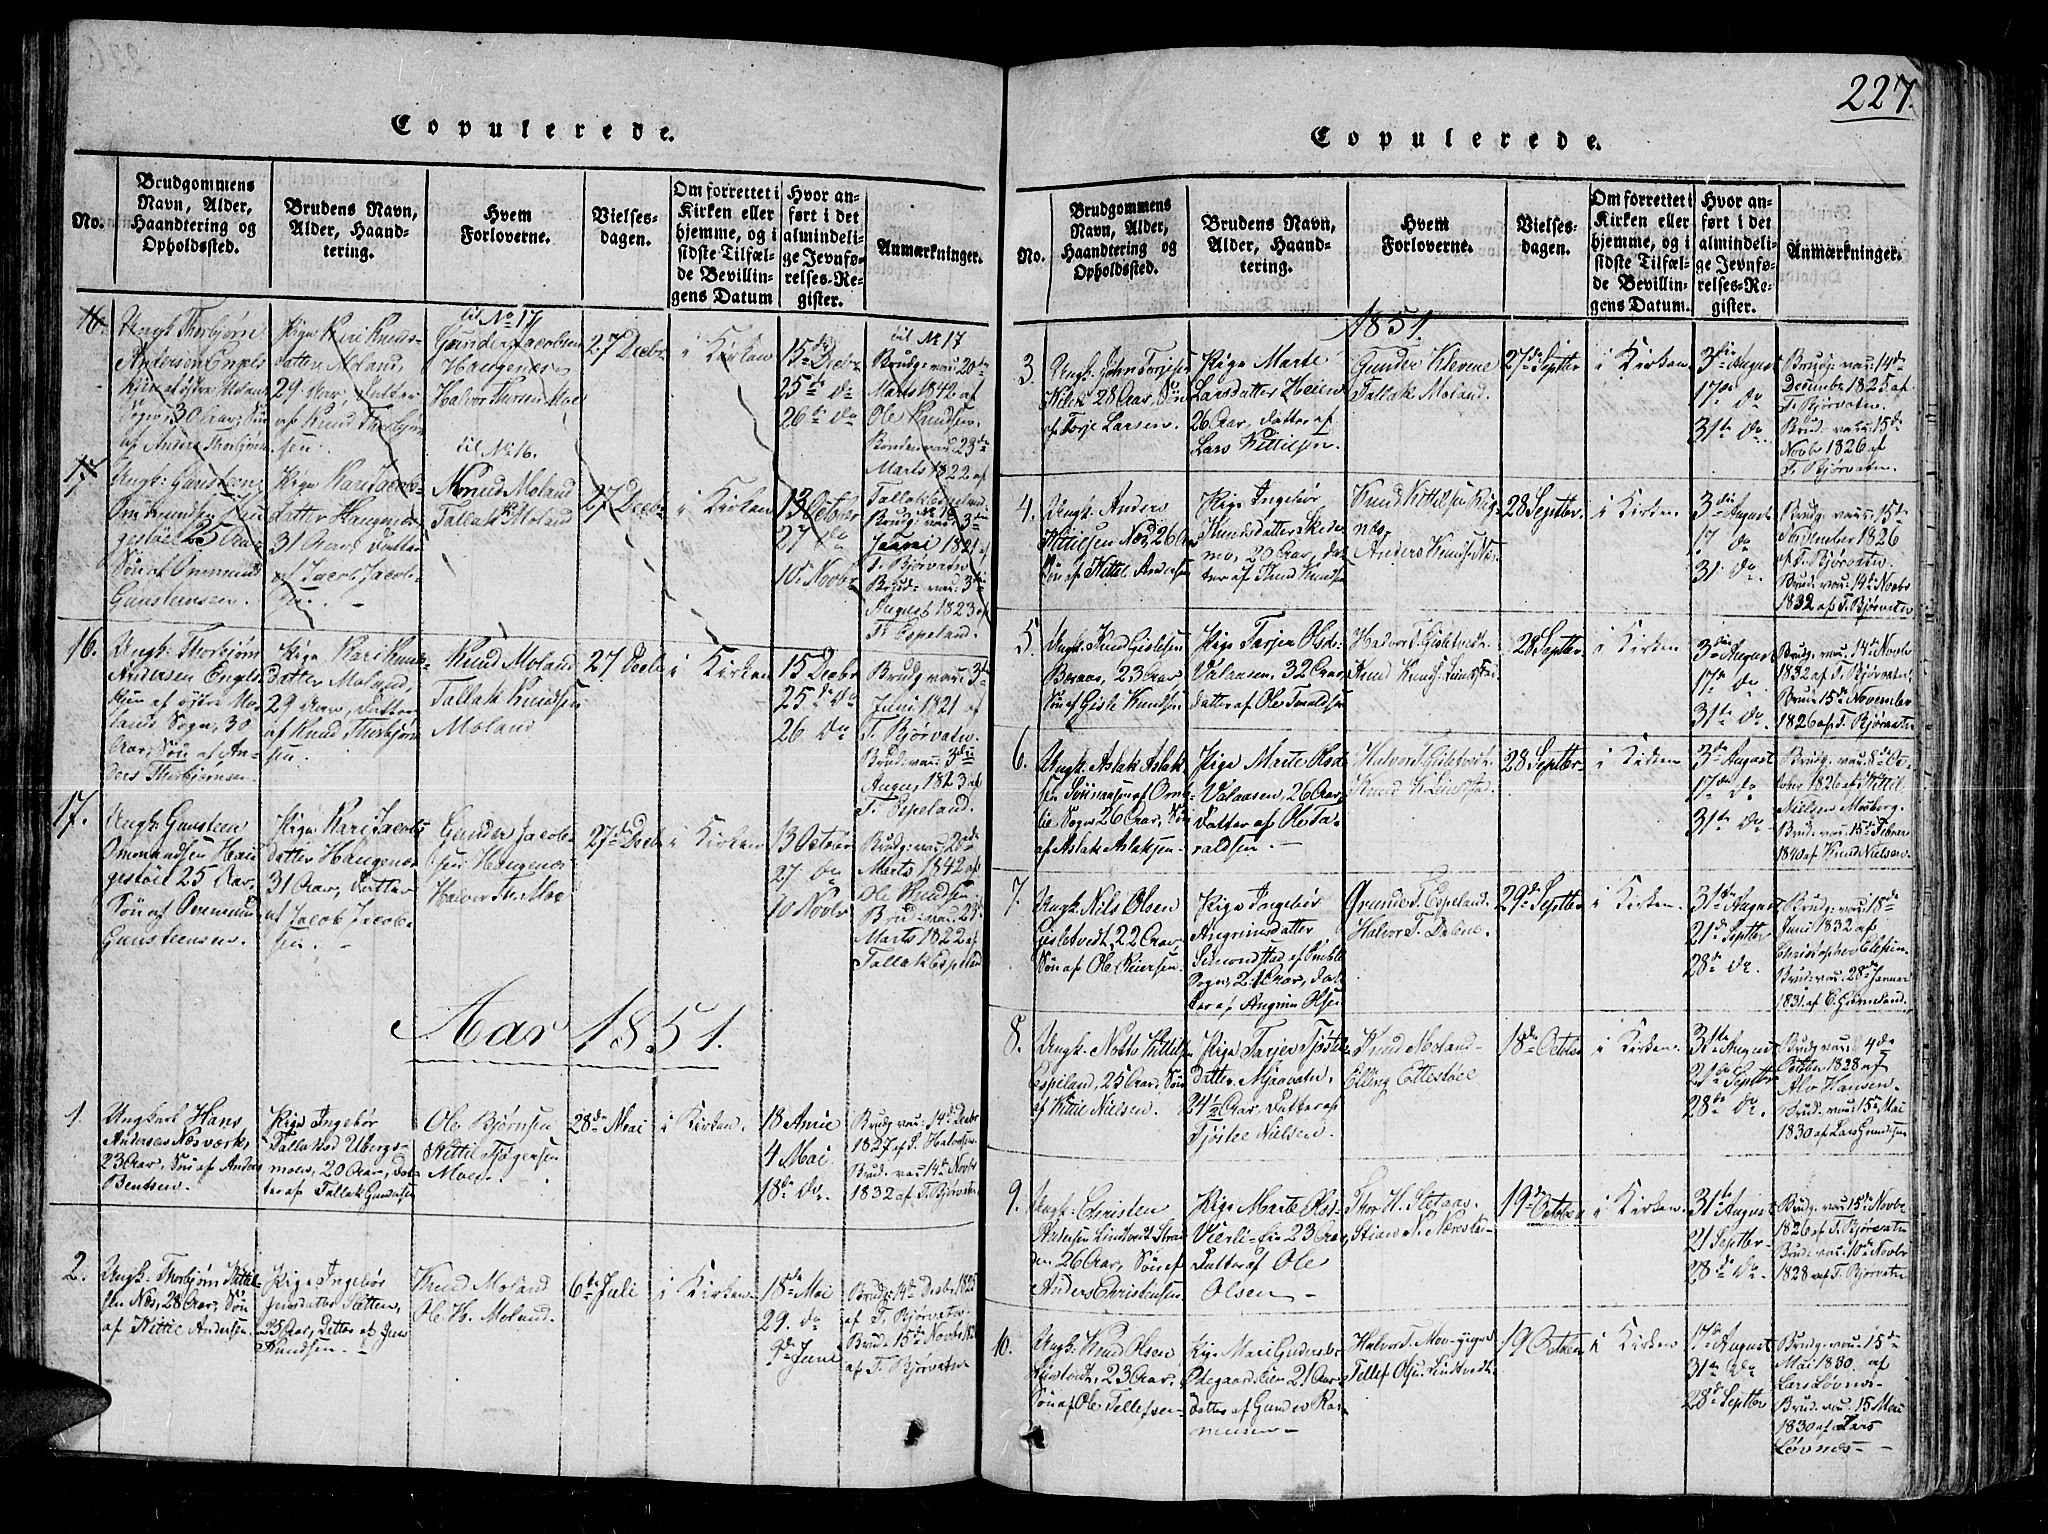 227.
Copulerede.
No.
Brudgommens
Navn, Alder,
Haandtering og
Opholdssted.
Brudens Navn,
Alder, Haand-
tering.
Hvem
Forloverne.
Vielses-
dagen.
Om forrettet i
Kirken eller
hjemme, og i
sidste Tilfæl-
de Bevillin-
gens Datum
Hvor an-
ført i det
almindeli-
ge Jevnfø-
relses-Re-
gister.
Anmærkninger.
16.
Ungk. Thorbjørn
Andersen Engels
af østre Moland
Sogn, 30 Aar, Søn
af Anders Thorbjørn
Pige Kari Knuds-
datter Moland,
29 Aar, Datter
af Knud Thorbjørn
sen.
til No 17
Gunder Jacobsen
Haugenes
Halvor Thorsen Moe
27 Decbr
i Kirken
15de Decbr
25de do
26de do
til No 17
Brudg. vac: 20de
Marts 1842 af
Ole Knudsen.
Bruden vac: 23de
Marts 1822 af
Tallak Espeland
17.
Ungk: Gunsteen
Ommundsen Hau
gestöel 25 Aar,
Søn af Ommund
Gunsteensen.
Pige Kari Jacobs-
datter Haugenes
31 Aar, Datter
af Jacob Jacob-
sen. -
til No 16.
Knud Moland
Tallak Moland
27 Decbr
i Kirken
13 Octobr
27 do
10de Novbr
No 16
Brudg: vac: 3die
Juni 1821 af
T. Bjørvatn
Brud: vac: 3die
August 1823 af
T. Espeland.
16.
Ungk: Thorbjørn
Andersen Engels
af østre Mo-
land Sogn, 30
Aar, Søn af An-
ders Thorbjørnsen.
Pige Kari Knuds-
datter Moland,
29 Aar, Datter
af Knud Thorbjørn
sen.
Knud Moland
Tallak Knudsen
Moland
27 Decbr
i Kirken
15 Decbr
25de do
26 do
Brudg vac: 3die
Juni 1821 af
T. Bjørvatn.
Brud: vac: 3die
Augus, 1823 af
T. Espeland.
17.
Ungk: Gunsteen
Ommundsen Hau
gestöel 25 Aar,
Søn af Ommund
Gunsteensen.
Pige Kari Jacobs
datter Haugenes
31 Aar, Datter
af Jacob Jacob-
sen. -
Gunder Jacob-
sen Haugenes
Halvor Th. Moe
27de Decbr
i Kirken
13 Octobr
27 do
10 Novbr
Brudg: vac: 20de
Marts 1842 af
Ole Knudsen
Brud: vac: 23de
Marts 1822 af
Tallak Espeland
Aar 1851.
1.
Ungkarl Hans
Andersen Næsværk,
23 Aar, Søn af Anders
Bentsen.
Pige Ingebør
Tallaksd Ubergs-
moen, 20 Aar, Dat-
ter af Tallak Gundersen
Ole Bjørnsen
Kittil Jørgensen
Moen.
28de Mai
i Kirken
18 April
4 Mai
18de do.
Brudg vac: 14de Decbr
1827 af S. Halvorsen.
Brud: vac: 14de Novbr
1832 af T. Bjørvatn
2.
Ungk: Thorbjørn Kittil-
sen Næs, 28 Aar, Søn
af Kittil Andersen.
Pige Ingebør
Jensdatter Sletten,
25 Aar, Datter af Jens
Knudsen. -
Knud Moland
Ole K. Moland.
6te Juli
i Kirken
18de Mai
29. do
9de Juni
Brudg: 14de Decbr 1825
af T. Bjørvatn.
Brud: 15de Novbr 1826
af T. Bjørvatn
Copulerede.
No.
Brudgommens
Navn, Alder,
Haandtering og
Opholdssted.
Brudens Navn,
Alder, Haand-
tering.
Hvem
Forloverne.
Vielses-
dagen.
Om forrettet i
Kirken eller
hjemme, og i
sidste Tilfæl-
de Bevillin-
gens Datum.
Hvor an-
ført i det
almindeli-
ge Jevnfø-
relses-Re-
gister.
Anmærkninger.
1851.
3.
Ungk: John Terjesen
28 Aar, Søn
af Terje Larsen.
Pige Marte
Larsdatter Heien
26 Aar, Datter af
Lars Kittilsen.
Gunder Klevene
Tallak Moland.
27de Septbr
i Kirken
3die August
17de do
31te do.
Brudg: vac: 14de
December 1825 af
T. Bjørvatn.
Brud: vac: 15de
Novbr 1826 af
T. Bjørvatn.
4.
Ungk. Anders
Kittilsen Næs, 26 Aar
Søn af Kittil Andersen
Pige Ingebør
Knudsdatter Skee-
mo, 20 Aar, Dat-
ter af Knud Knudsen
Knud Kittilsen
Anders Knudsen Næs
28 Septbr.
i Kirken
3die August
17 do
31 do.
Brudg: vac: 15de
November 1826
af T. Bjørvatn
Brud: vac: 14de Novbr
1832 af T. Bjørvatn
5.
Ungk: Knud Gislesen
Beraas, 23 Aar
Søn af Gisle Knudsen
Pige Tarjer Olsd-
Valaasen, 32 Aar,
datter af Ole Taraldsen
Halvor T. Gisletvedt
Knud Knuds: Lindstøl
28 Septbr.
i Kirken
3die August
17de do.
31te do.
Brudg: vac: 14de Novbr
1832 af T. Bjørvatn
Brud: 15de November
1826 af T. Bjørvatn
6.
Ungk. Aslak Aslak-
sen Sønnaasen af Om-
lie Sogn 26 Aar, Søn
af Aslak Aslaksen.
Pige Marte Olsd-
Valaasen, 26 Aar,
Datter af Ole Ta-
raldsen. -
Halvor T. Gisletvedt
Knud K. Lindstøl.
28 Septbr-
i Kirken
3die August
17de do
31te do.
Brudg: vac: 8de Oc-
tober 1826 af Kittil
Nielsen Mosberg.
Brud: vac: 15de Febr
1840 af Knud Nielsen.
7.
Ungk. Nils Olsen
Gisletvedt, 22 Aar,
Søn af Ole Peiersen
Pige Ingebør
Angrimsdatter
Simonstad af Omblie
Sogn, 21 Aar, Dat
ter af Angrim Olsen
Grunde T. Espeland.
Halvor T. Dalene.
29de Septbr
i Kirken
31te August
21de Septbr
28de do.
Brudg: vac: 18de
Juni 1832 af
Christopher Ellefsen.
Brud: vac: 28de Januar
1831 af C. Grimeland.
8.
Ungk. Notto Kittilsen
Espeland, 25 Aar, Søn
af Kittil Nielsen.
Pige Tarjer Tjøstel-
datter Myrvatn,
24½ Aar, Datter af
Tjøstel Nielsen.
Knud Moland-
Elling Ettestöl
18de Octobr
i Kirken
31te August
21de Septbr
28de do.
Brudg: vac: 4de
1828 af
Hansen
Brud: vac: 15de Mai
1830 af Lars Grundesen
9.
Ungk: Christen
Andersen Lindtvedt Stran-
den 26 Aar, Søn af
Anders Christensen
Pige Marte Olsd-
Vierli- 23 Aar,
Datter af Ole
Olsen -
Thor H. Sletaas,
Stian N. Nærestad-
19de October
i Kirken.
31te August
21 Septbr-
28de do.
Brudg: vac: 15de Novbr
1826 af T. Bjørvatn
Brud: vac: 10de Novbr
1828 af T. Bjørvatn
10.
Ungk: Knud Olsen
Lindtvedt, 23 Aar,
Søn af Ole Tellefsen-
Pige Mari Gundersd-
Ødegaardslien 21 Aar-
datter af Gunder Ras-
mussen -
Halvor T. Mov-
Tellef Olsen Lindtvedt
19 October
i Kirken
17de August
31te do
28de Septbr
Brudg: vac: 15de
Mai 1830 af
Lars Løvnes-
Brud: vac: 15 Mai
1830 af Lars
Løvnes-